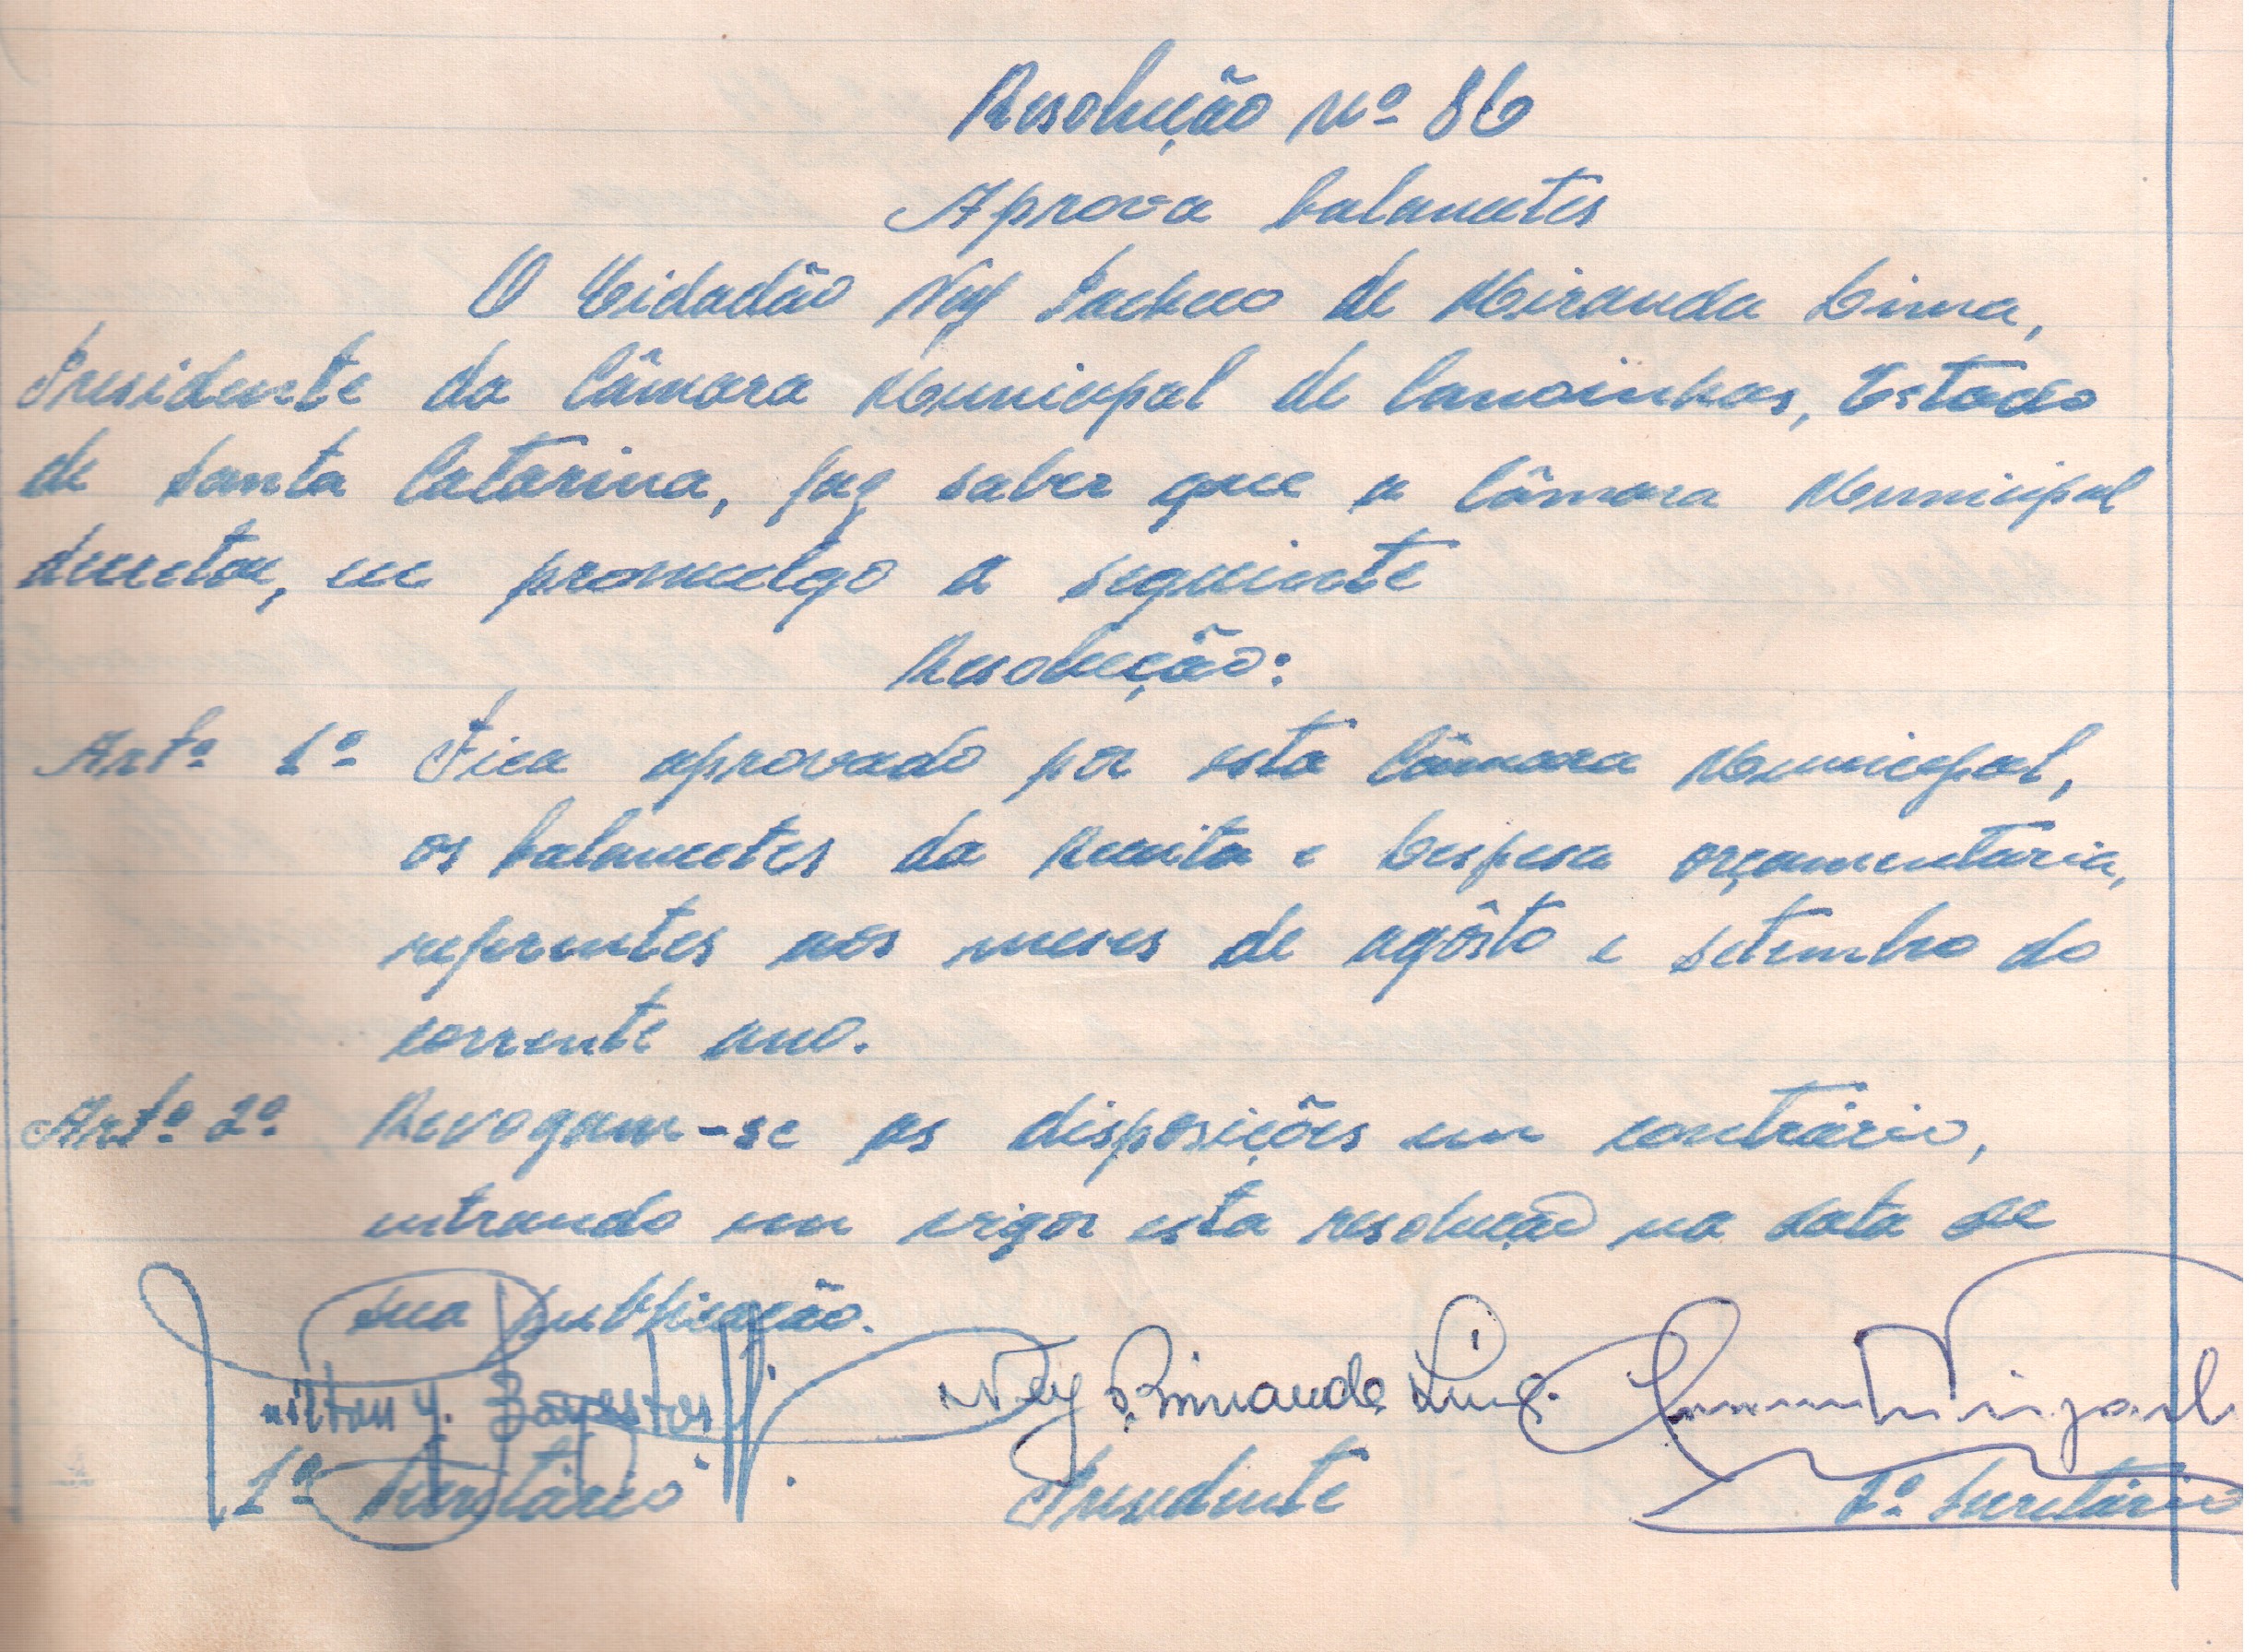 Resolução Nº 86
Aprova balancetes
O Cidadão Ney Pacheco de Miranda Lima,
Presidente da Câmara Municipal de Canoinhas, Estado
de Santa Catarina, faz saber que a Câmara Municipal
decretou, eu promulgo a seguinte
Resolução:
Artº 1º Fica aprovado por esta Câmara Municipal,
os balancetes da Receita e Despesa orçamentária,
referentes aos meses de agôsto e setembro do
corrente ano.
Artº 2º Revogam-se as disposições em contrário,
entrando em vigor esta resolução na data de
sua publicação.
Ney P. Miranda Lima
1º Secretário Presidente 2º Secretário